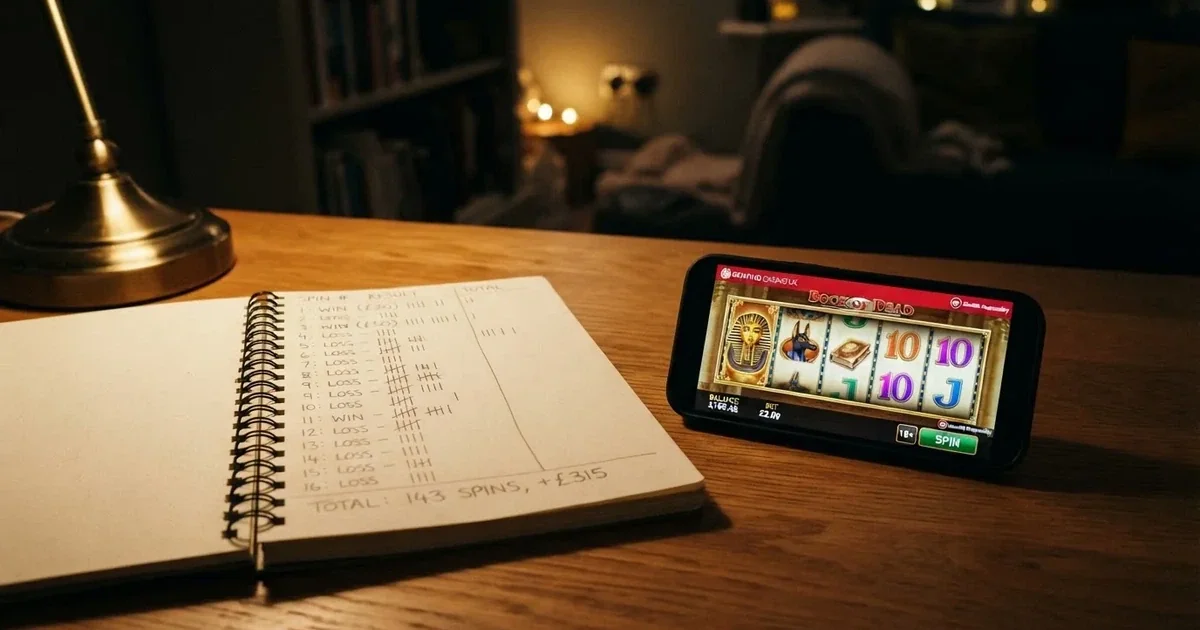 SPIN # RESULT TOTAL
1: WIN (£20)
2: LOSS
3: WIN (£50)
4: LOSS –
5: LOSS –
6: LOSS –
7: LOSS –
8: LOSS –
9: LOSS –
10: LOSS
11: WIN –
12: LOSS –
13: LOSS –
14: LOSS –
15: LOSS –
16: LOSS –
TOTAL: 143 SPINS, +£315
BOOK OF DEAD
10 10
10 J
J
BALANCE BET
18+ SPIN